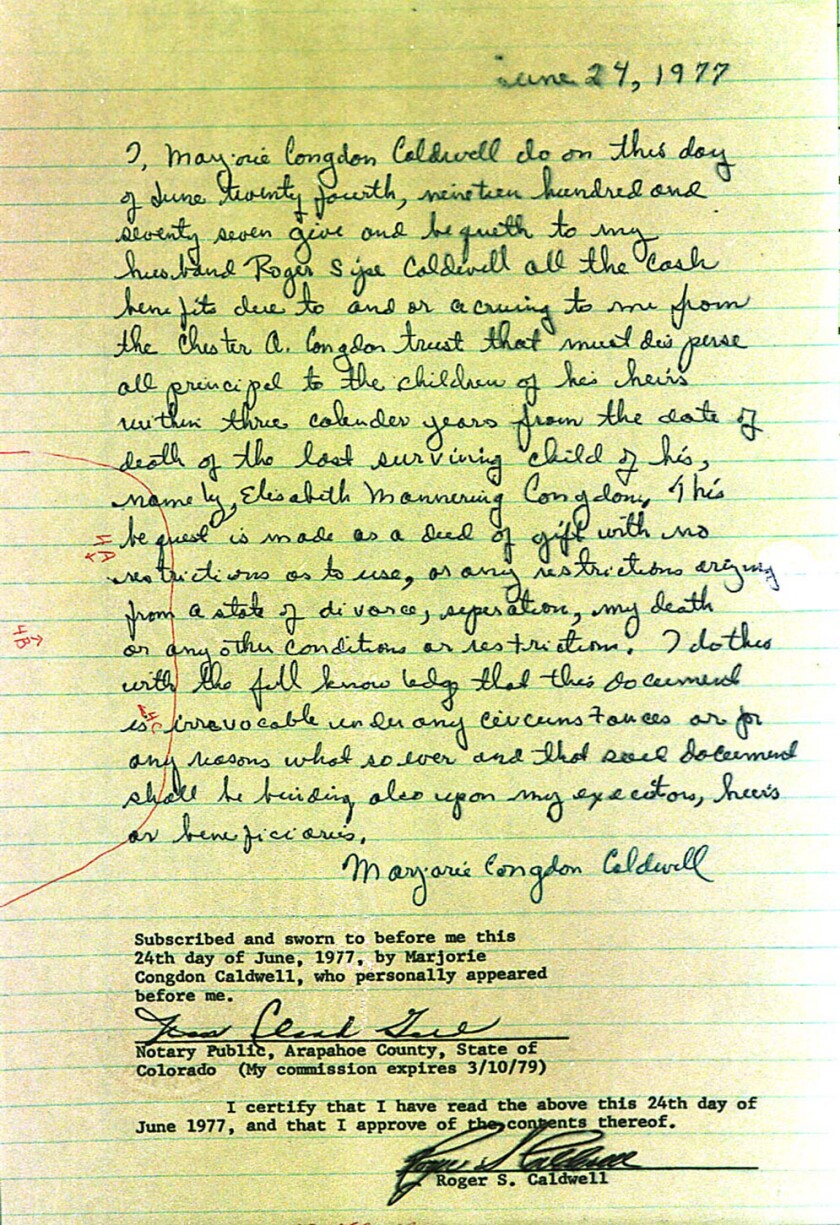 June 24, 1977
I, Marjorie Congdon Caldwell do on this day
of June twenty fourth, nineteen hundred and
seventy seven give and bequeth to my
husband Roger Sipe Caldwell all the cash
benefits due to and or acruing to me from
the Chester A. Congdon trust that must disperse
all principal to the children of his heirs
within three calender years from the date of
death of the last surviving child of his,
namely, Elisabeth Mannering Congdon. This
bequest is made as a deed of gift with no
restrictions as to use, or any restrictions arizing
from a state of divorce, seperation, my death
or any other conditions or restrictions. I do this
with the full knowledge that this document
is irrovocable under any circumstances or for
any reasons what so ever and that said document
shall be binding also upon my executors, heirs
or beneficiaries.
Marjorie Congdon Caldwell
4A
4B
4C
Subscribed and sworn to before me this
24th day of June, 1977, by Marjorie
Congdon Caldwell, who personally appeared
before me.
Notary Public, Arapahoe County, State of
Colorado (My commission expires 3/10/79)
I certify that I have read the above this 24th day of
June 1977, and that I approve of the contents thereof.
Roger S. Caldwell
Roger S. Caldwell